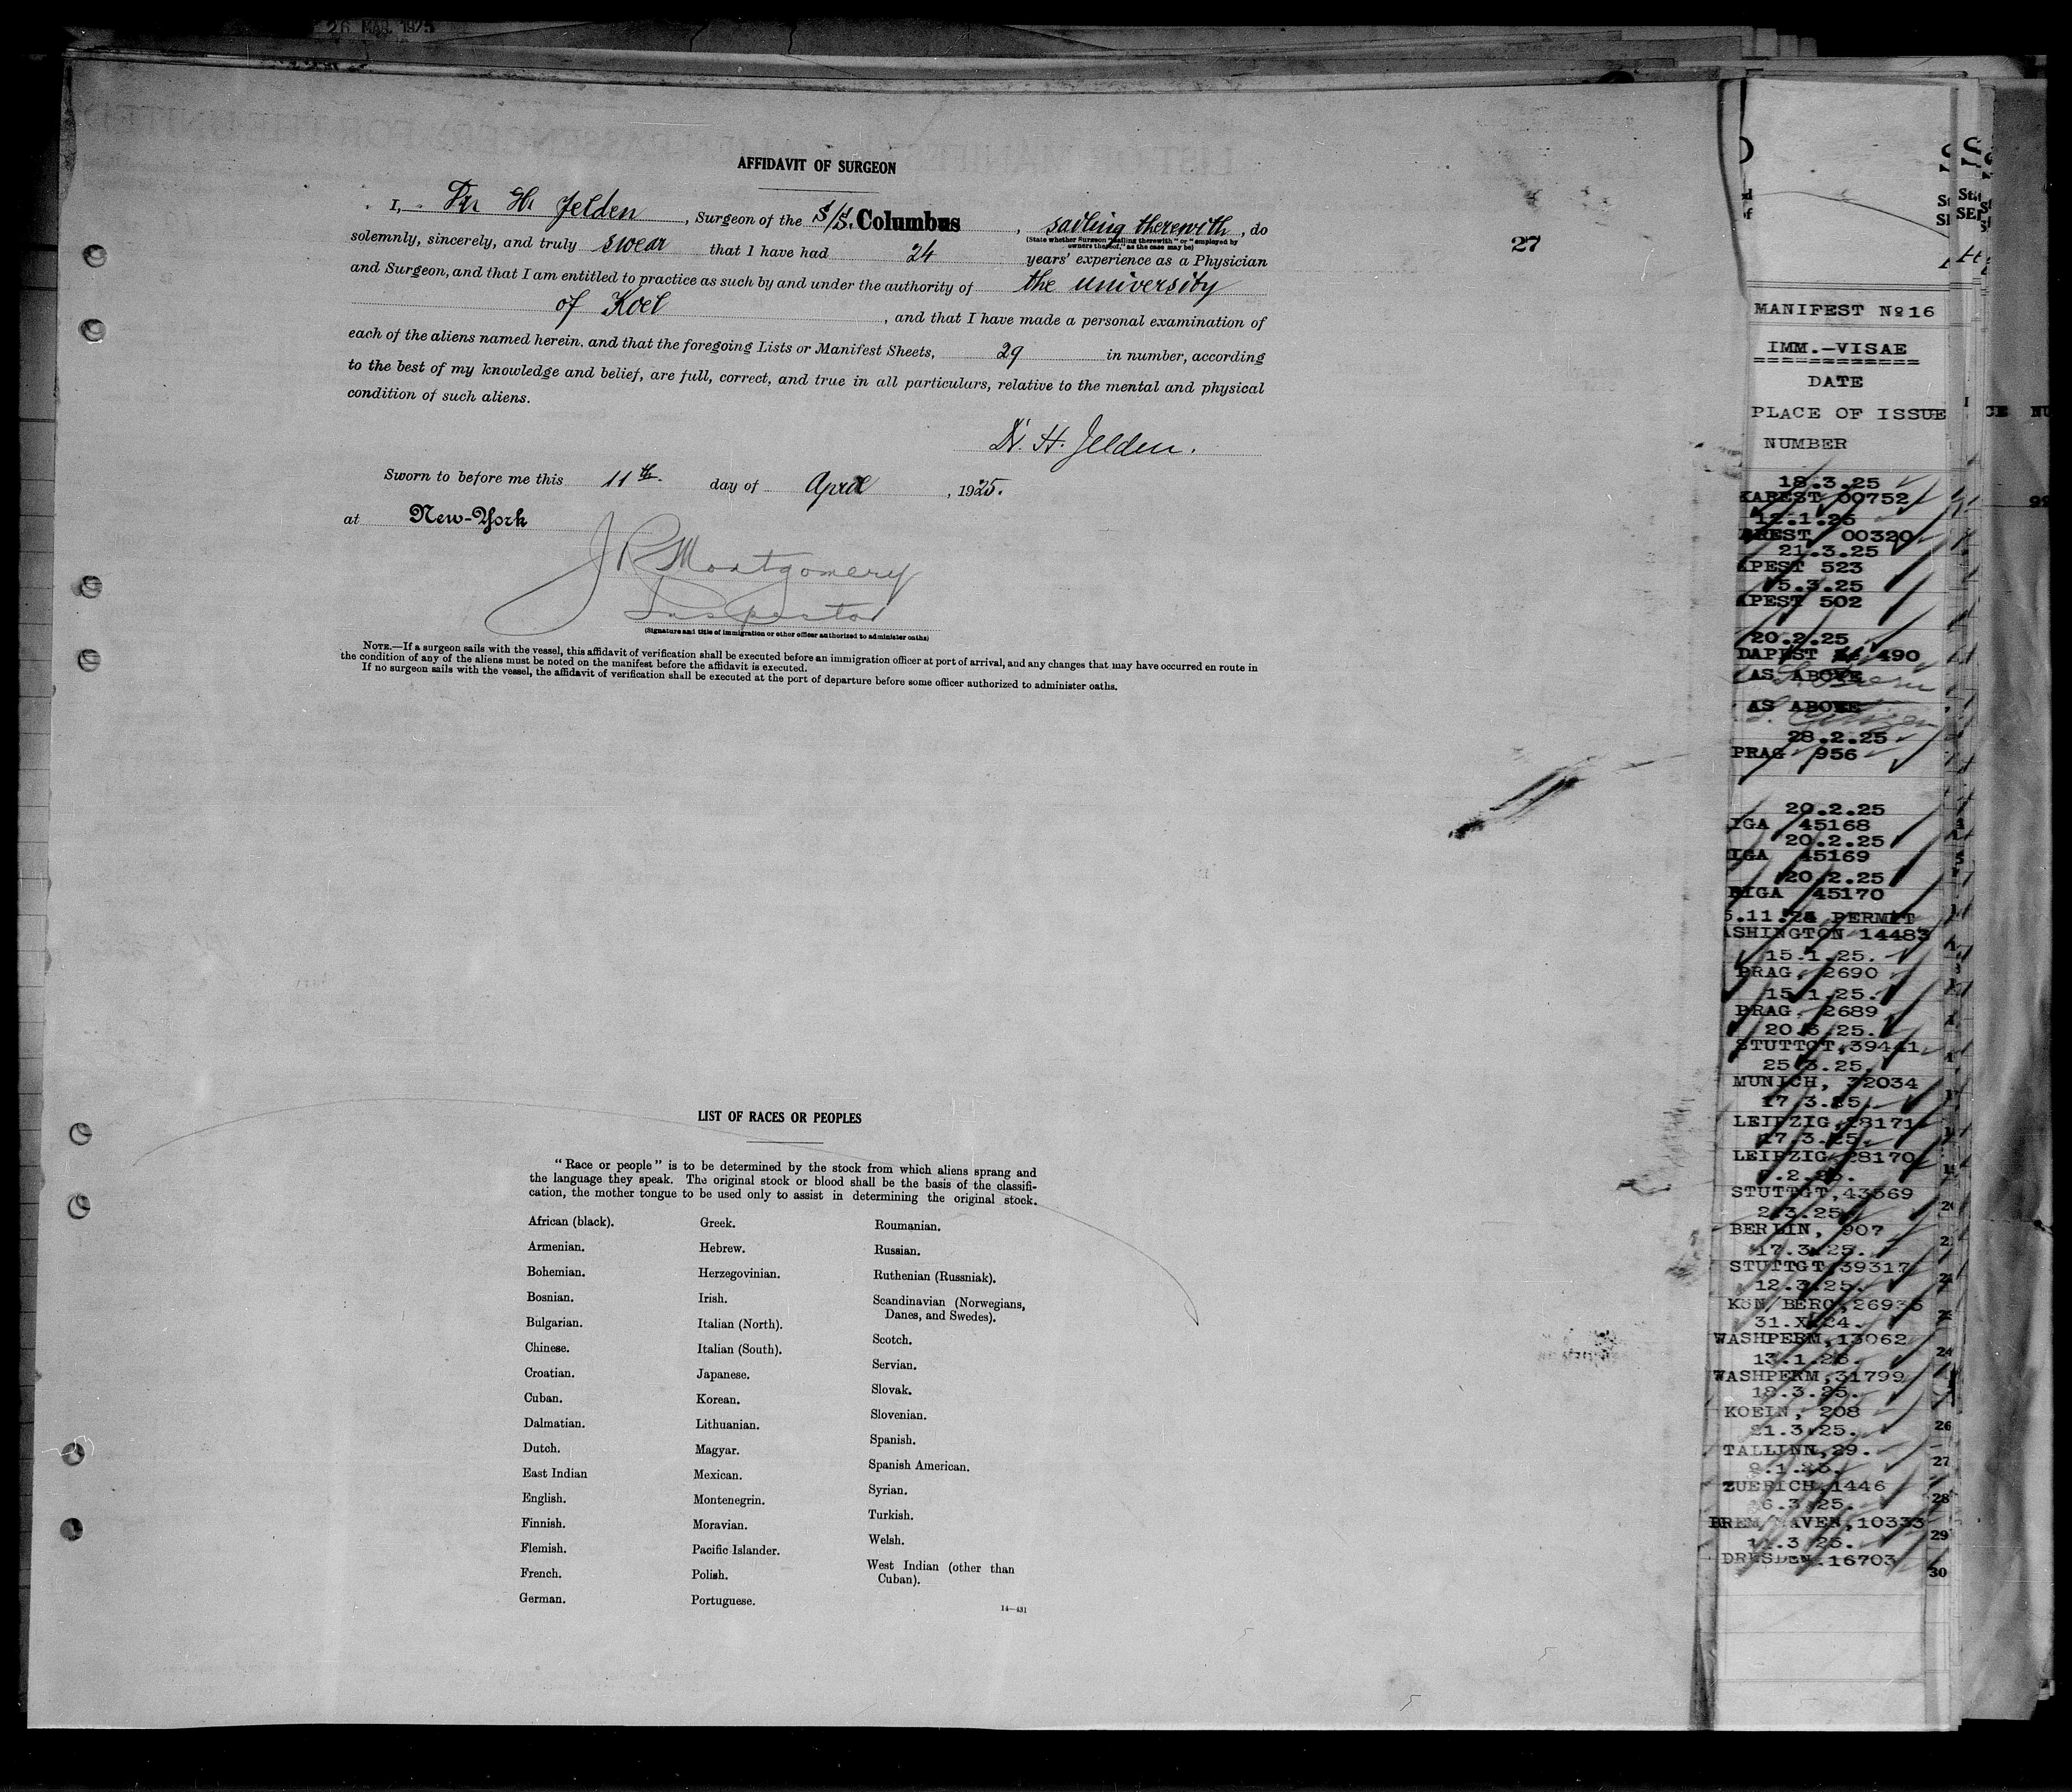 26 MAR. 1925
AFFIDAVIT OF SURGEON
I, Dr. H. Jelden, Surgeon of the S/S. Columbus, sailing therewith, do
(State whether Surgeon "sailing therewith" or "employed by
owners thereof," as the case may be)
solemnly, sincerely, and truly swear that I have had 24 years' experience as a Physician
and Surgeon, and that I am entitled to practice as such by and under the authority of the university
of Koel, and that I have made a personal examination of
each of the aliens named herein, and that the foregoing Lists or Manifest Sheets, 29 in number, according
to the best of my knowledge and belief, are full, correct, and true in all particulars, relative to the mental and physical
condition of such aliens.
Dr. H. Jelden.
Sworn to before me this 11th. day of April, 1925.
at New-York
J R Montgomery
Inspector
(Signature and title of immigration or other officer authorized to administer oaths)
NOTE.—If a surgeon sails with the vessel, this affidavit of verification shall be executed before an immigration officer at port of arrival, and any changes that may have occurred en route in
the condition of any of the aliens must be noted on the manifest before the affidavit is executed.
If no surgeon sails with the vessel, the affidavit of verification shall be executed at the port of departure before some officer authorized to administer oaths.
27
LIST OF RACES OR PEOPLES
"Race or people" is to be determined by the stock from which aliens sprang and
the language they speak. The original stock or blood shall be the basis of the classifi-
cation, the mother tongue to be used only to assist in determining the original stock.
African (black).
Armenian.
Bohemian.
Bosnian.
Bulgarian.
Chinese.
Croatian.
Cuban.
Dalmatian.
Dutch.
East Indian
English.
Finnish.
Flemish.
French.
German.
Greek.
Hebrew.
Herzegovinian.
Irish.
Italian (North).
Italian (South).
Japanese.
Korean.
Lithuanian.
Magyar.
Mexican.
Montenegrin.
Moravian.
Pacific Islander.
Polish.
Portuguese.
Roumanian.
Russian.
Ruthenian (Russniak).
Scandinavian (Norwegians,
Danes, and Swedes).
Scotch.
Servian.
Slovak.
Slovenian.
Spanish.
Spanish American.
Syrian.
Turkish.
Welsh.
West Indian (other than
Cuban).
14—431
MANIFEST No 16
IMM.-VISAE
DATE
PLACE OF ISSUE
NUMBER
18.3.25
KAREST 00752
12.1.25
REST 00320
21.3.25
APEST 523
5.3.25
APEST 502
20.2.25
DAPEST 490
AS ABOVE
AS ABOVE
28.2.25
PRAG 956
20.2.25
IGA 45168
20.2.25
IGA 45169
20.2.25
RIGA 45170
PERMIT
ASHINGTON 14483
15.1.25.
PRAG, 2690
15.1.25.
PRAG, 2689
20.3.25.
STUTTGT,39441
25.3.25.
MUNICH, 32034
17.3.25.
LEIPZIG,28171
17.3.25.
LEIPZIG,28170
STUTTGT,43569
2.3.25.
BERLIN, 907
17.3.25.
STUTTGT,39317
12.3.25.
31.X.24.
WASHPERM,13062
13.1.25.
WASHPERM,31799
18.3.25.
KOELN, 208
21.3.25.
TALLINN,29.
ZUERICH,1446
BREM/HAVEN,10333
DRESDEN.16703
24
26
27
28
29
30